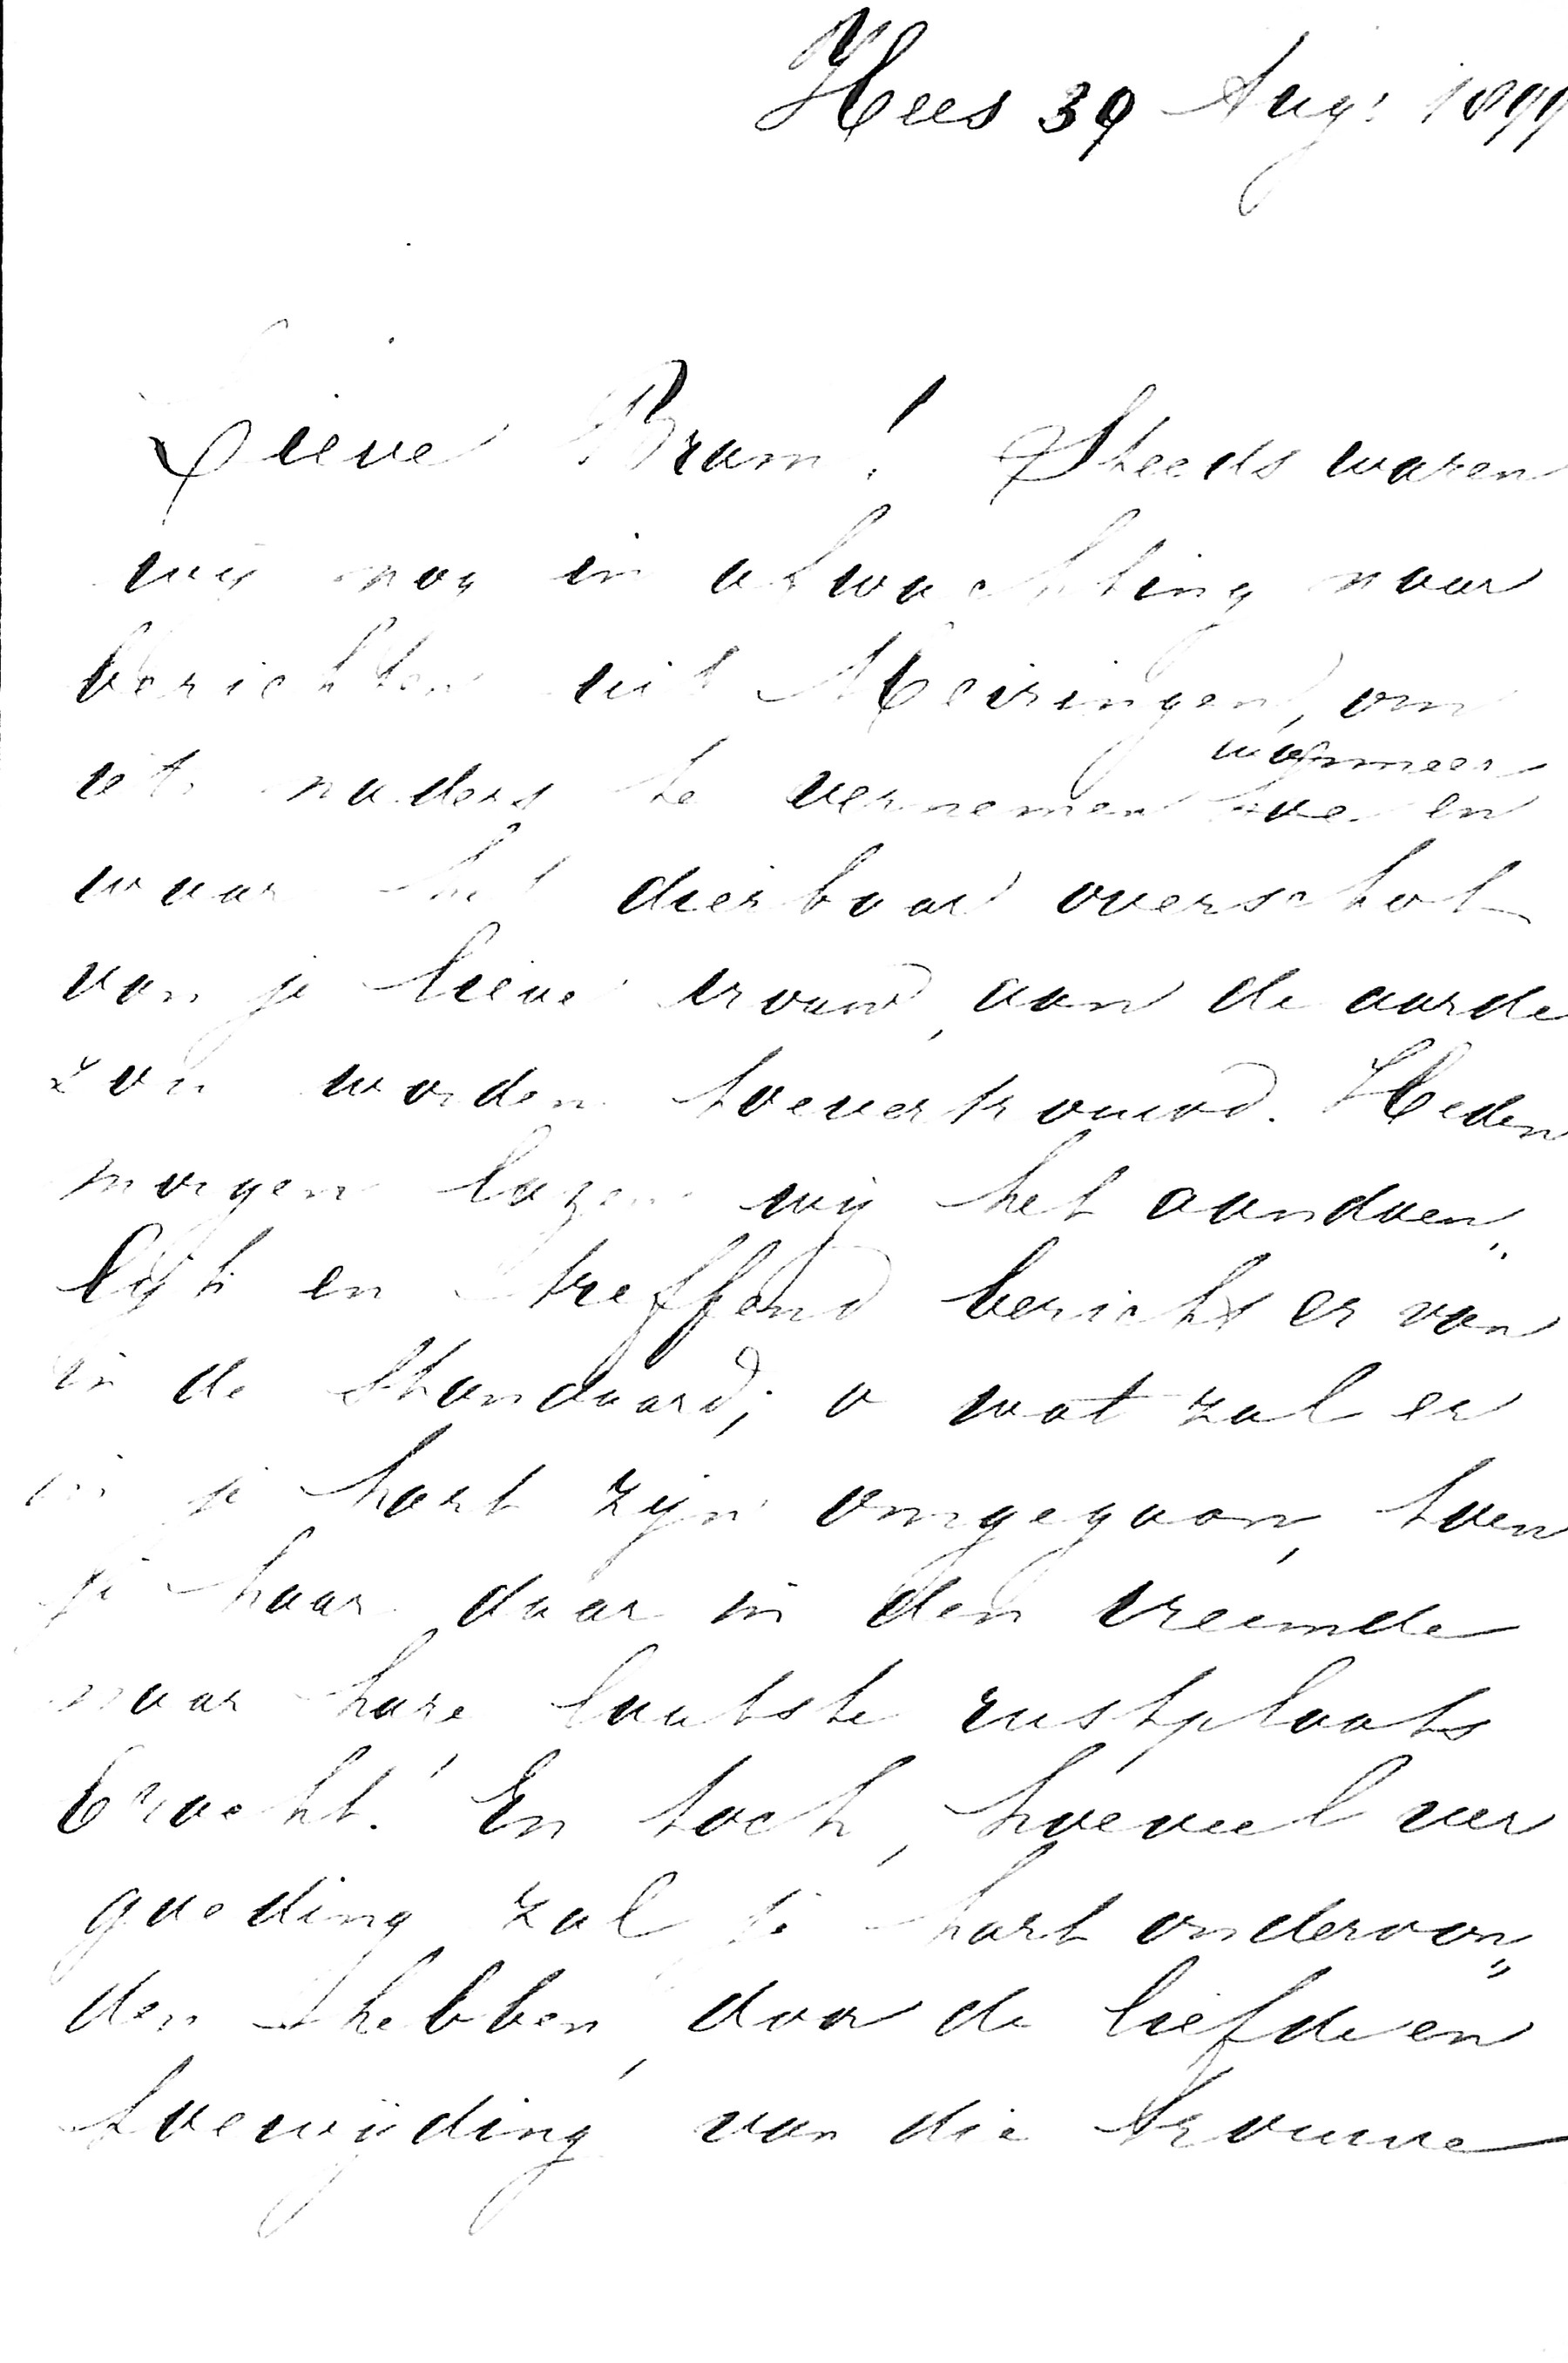 Hees 30 Aug: 1899
Lieve Bram! Steeds waren
wij nog in afwachting naar
berichten uit Meiringen, om
wanneer
iets naders te vernemen hoe en
waar het dierbaar overschot
van je lieve vrouw, aan de aarde
zou worden toevertrouwd. Heden
morgen lazen wij het aandoen„
lijk en treffend bericht er van
in de Standaard; o wat zal er
in je hart zijn omgegaan, toen
je haar daar in den vreemde
naar hare laatste rustplaats
bracht! En toch, hoeveel ver
goeding zal je hart ondervon„
den hebben, door de liefde en
toewijding van die trouwe